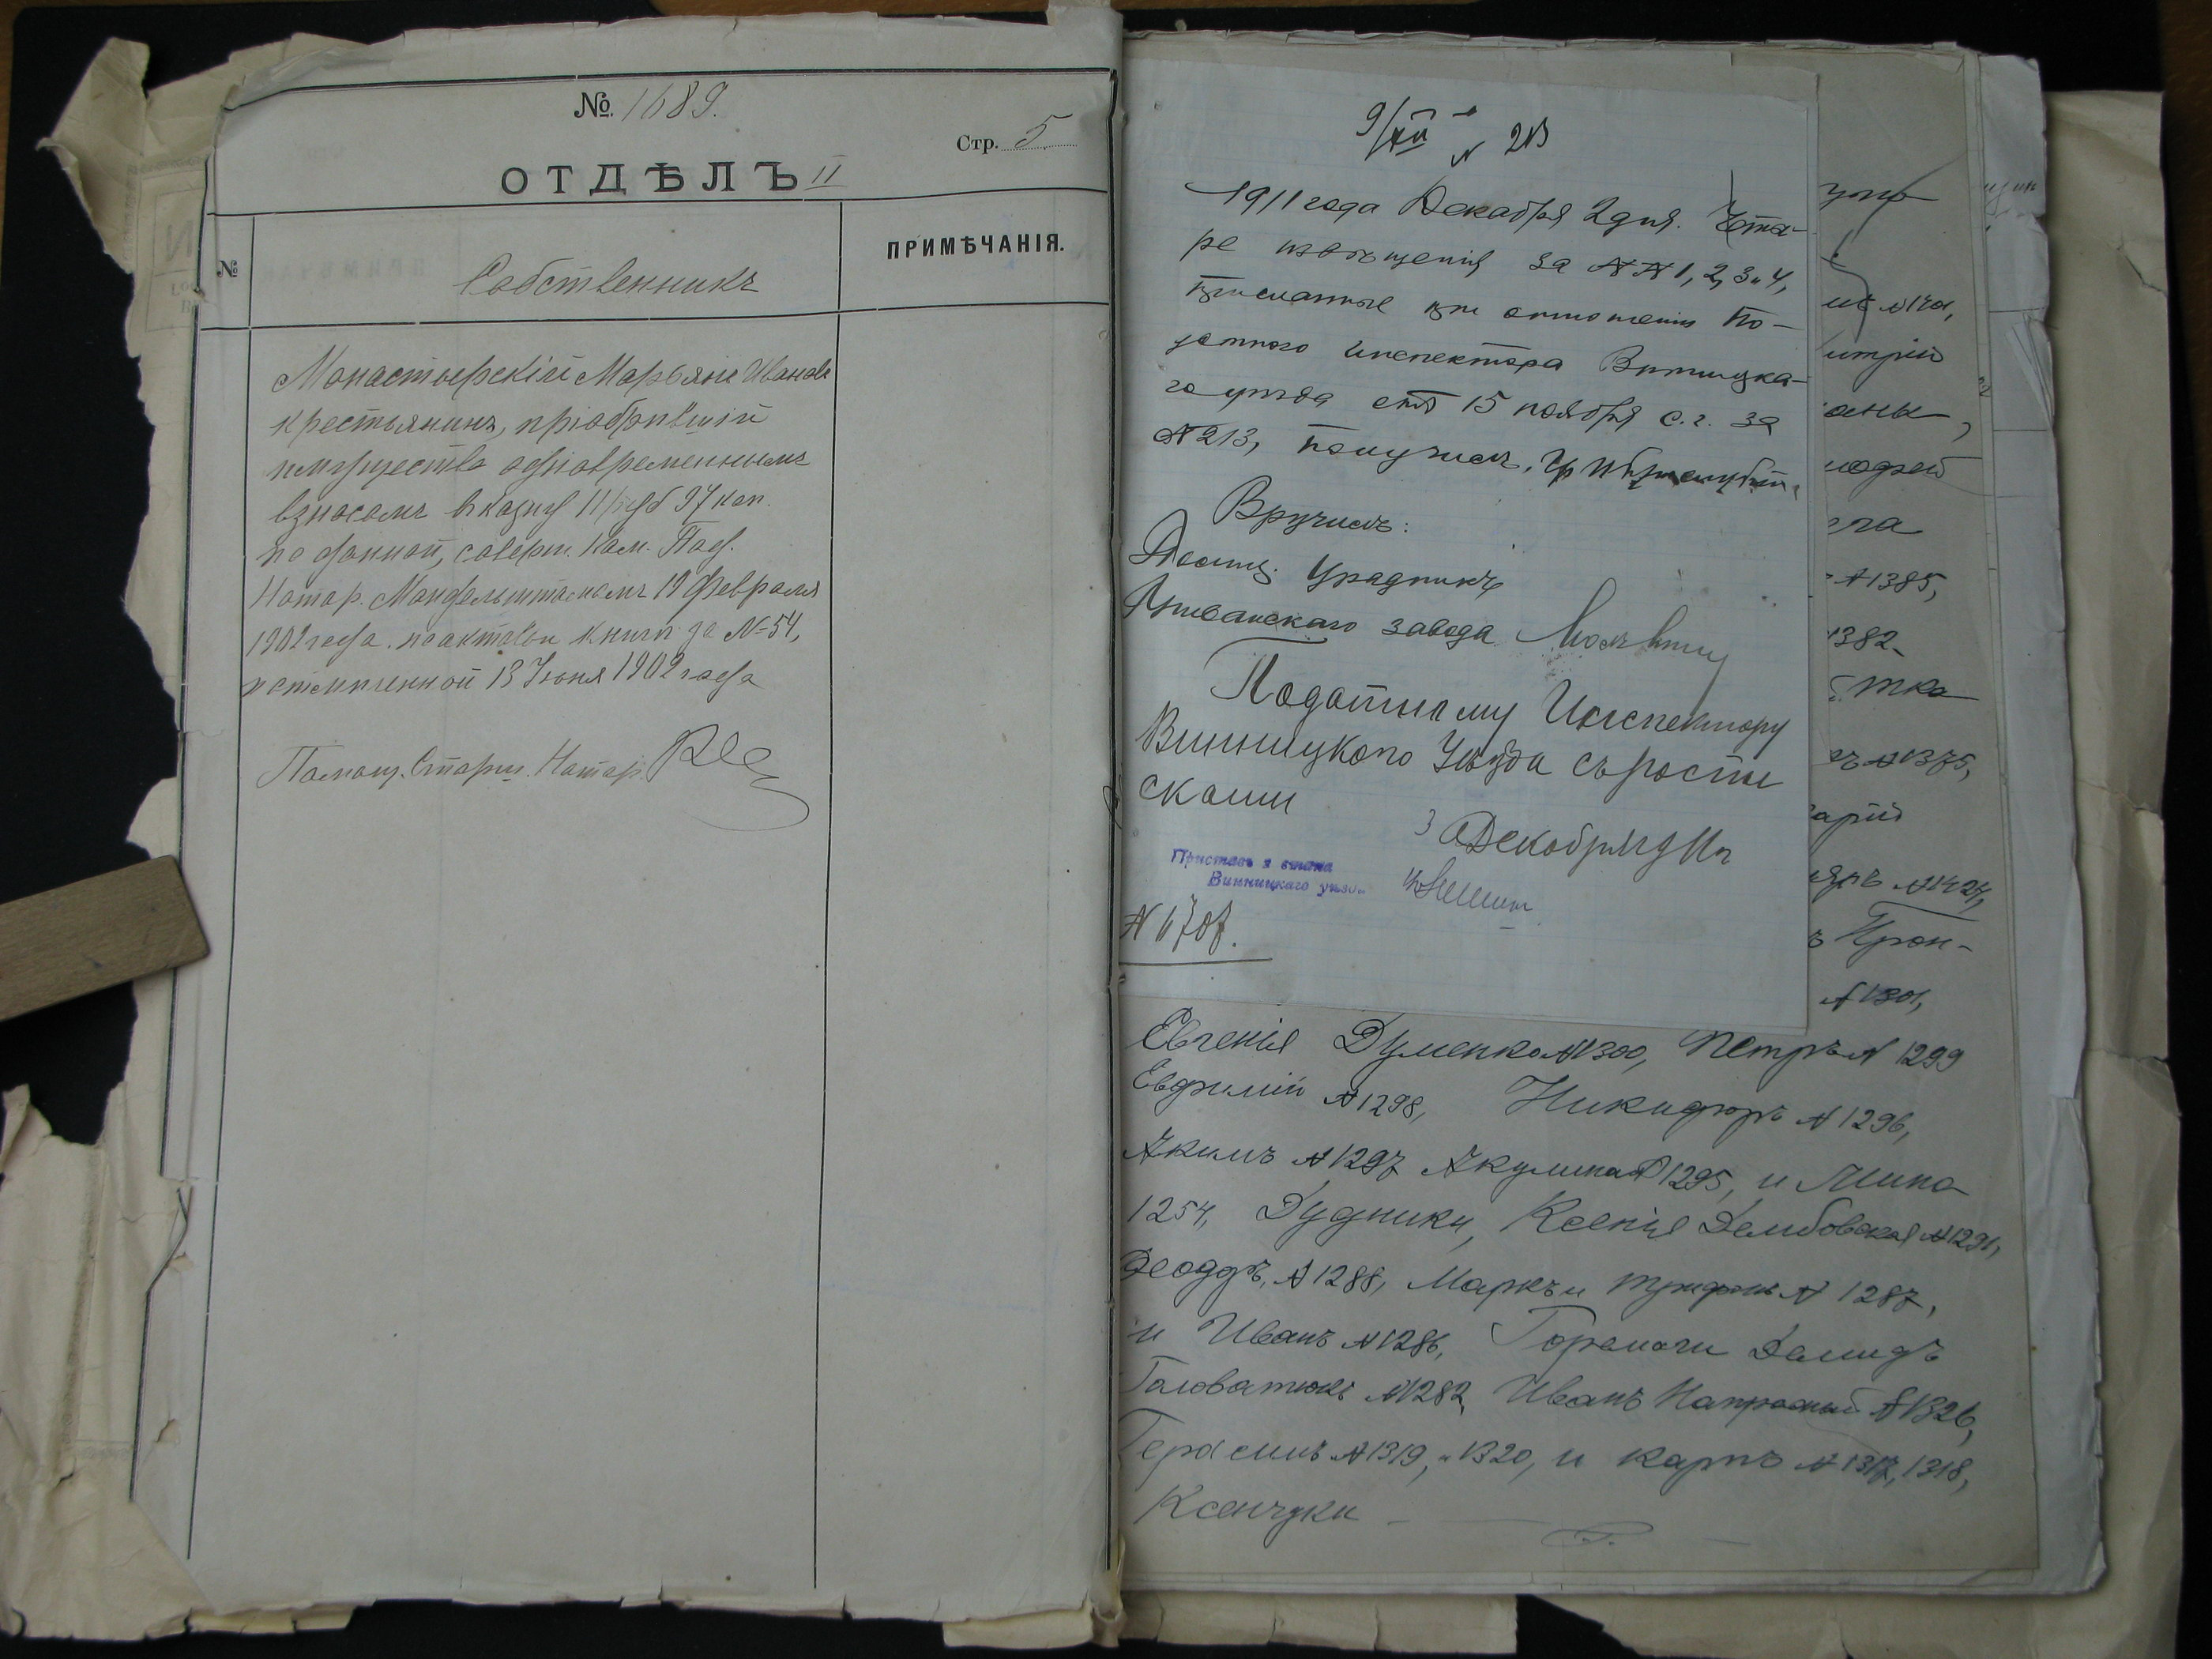 № 1689.
Стр. 5
ОТДѢЛЪ II
№
Собственникъ
ПРИМѢЧАНІЯ.
Монастырскій Марьянъ Иванов
крестьянинъ, пріобрѣвшій
имущество одновременнымъ
взносомъ въ казну 11 руб 97 коп.
по данной, соверш. Кам. Под.
Нотар. Мандельштамомъ 19 Февраля
1902 года по актовой книгѣ за №54,
и отмѣченной 13 Іюня 1902 года
Помощ. Старш. Нотар.
9/XII № 213
1911 года Декабря 2 дня. Четы-
ре извѣщенія за №№ 1, 2, 3 и 4,
присланные при отношеніи По-
датного Инспектора Винницка-
го уѣзда отъ 15 ноября с.г. за
№213, получилъ,
Вручилъ:
Полиц. Урядникъ
завода
Податному Инспектору
Винницкого Уѣзда съ роспи
сками
3 Декабря 911 г
Приставъ 2 стана
Винницкаго уѣзда
№ 6707.
№1385,
1382
№1375,
№1424,
№1301,
Евгенія Думенко №1300, Петръ №1299
Евфимій №1298, Никифоръ №1296,
Акимъ №1297 Акулина №1295, и Мина
1254, Дудники, Ксенія Дембовская №1291,
Феодоръ, №1288, Маркъ и Трифонъ №1287,
и Иванъ №1286, Демидъ
Головатюкъ №1282, Иванъ №1326,
Герасимъ №1319, и 1320, и Карпъ №1317, 1318,
Ксенчуки